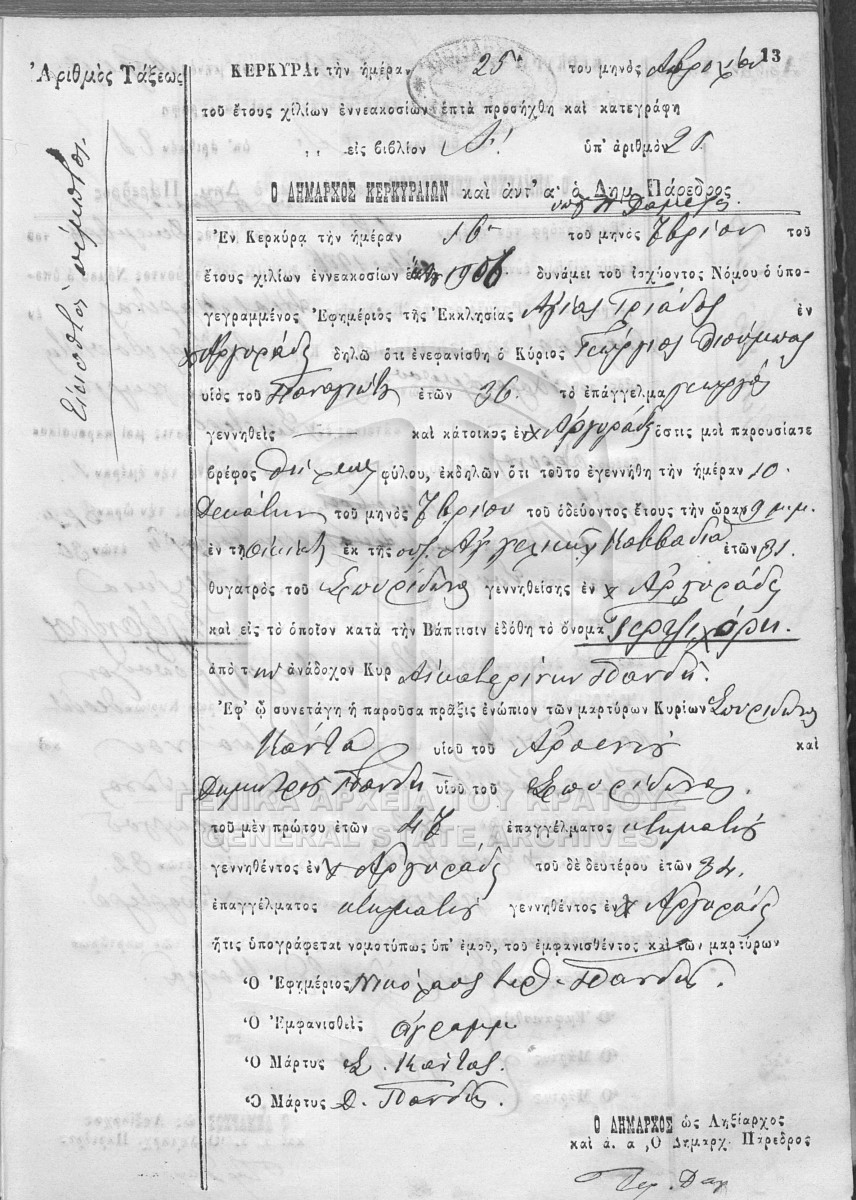 13
Ἀριθμὸς Τάξεως
Εἰκοστὸς πέμπτος.
ΚΕΡΚΥΡΑι τὴν ἡμέραν 25 του μηνὸς
τοῦ ἔτους χιλίων ἐννεακοσίων ἑπτὰ προσήχθη καὶ κατεγράφη
,, εἰς βιβλίον Α! ὑπ' ἀριθμὸν 25
Ο ΔΗΜΑΡΧΟΣ ΚΕΡΚΥΡΑΙΩΝ καὶ ἀντ' α· ὁ Δημ. Πάρεδρος
Ἐν Κερκύρᾳ τὴν ἡμέραν 16 τοῦ μηνὸς Ζβρίου τοῦ
ἔτους χιλίων ἐννεακοσίων 1906 δυνάμει τοῦ ἰσχύοντος Νόμου ὁ ὑπο-
γεγραμμένος Ἐφημέριος τῆς Ἐκκλησίας Ἁγίας Τριάδος ἐν
χ Ἀργυράδες δηλῶ ὅτι ἐνεφανίσθη ὁ Κύριος Γεώργιος
υἱὸς τοῦ Παναγιώτη ἐτῶν 36 τὸ ἐπάγγελμα γεωργὸς
γεννηθεὶς — καὶ κάτοικος ἐν χ Ἀργυράδες ὅστις μοὶ παρουσίασε
βρέφος θήλεος φύλου, ἐκδηλῶν ὅτι τοῦτο ἐγεννήθη τὴν ἡμέραν 10
Δεκάτην τοῦ μηνὸς Ζβρίου τοῦ ὁδεύοντος ἔτους τὴν ὥραν 9 μ.μ.
ἐν τῇ οἰκίᾳ ἐκ τῆς συζ. Ἀγγελικῆς Καββαδία ἐτῶν 31.
θυγατρὸς τοῦ Σπυρίδωνος γεννηθείσης ἐν χ Ἀργυράδες
καὶ εἰς τὸ ὁποῖον κατὰ τὴν Βάπτισιν ἐδόθη τὸ ὄνομα Τερψιχόρη.
ἀπὸ τὴν ἀνάδοχον Κυρ Αἰκατερίνην Πανδῆ.
Ἐφ' ᾧ συνετάγη ἡ παροῦσα πρᾶξις ἐνώπιον τῶν μαρτύρων Κυρίων Σπυρίδωνος
Κόντα υἱοῦ τοῦ Ἀρσενίου καὶ
Δημητρίου Πανδῆ υἱοῦ τοῦ Σπυρίδωνος.
ΓΕΝΙΚΑ ΑΡΧΕΙΑ ΤΟΥ ΚΡΑΤΟΥΣ
τοῦ μὲν πρώτου ἐτῶν 47 ἐπαγγέλματος κτηματίας
GENERAL STATE ARCHIVES
γεννηθέντος ἐν χ Ἀργυράδες τοῦ δὲ δευτέρου ἐτῶν 34.
ἐπαγγέλματος κτηματίας γεννηθέντος ἐν χ Ἀργυράδες
ἥτις ὑπογράφεται νομοτύπως ὑπ' ἐμοῦ, τοῦ ἐμφανισθέντος καὶ τῶν μαρτύρων
Ὁ Ἐφημέριος Νικόλαος ἱερ. Πανδῆς.
Ὁ Ἐμφανισθεὶς ἀγράμμ
Ὁ Μάρτυς Σ. Κόντας.
Ὁ Μάρτυς Δ. Πανδῆς.
Ο ΔΗΜΑΡΧΟΣ ὡς Ληξίαρχος
καὶ ἀ. α, Ὁ Δημαρχ. Πάρεδρος